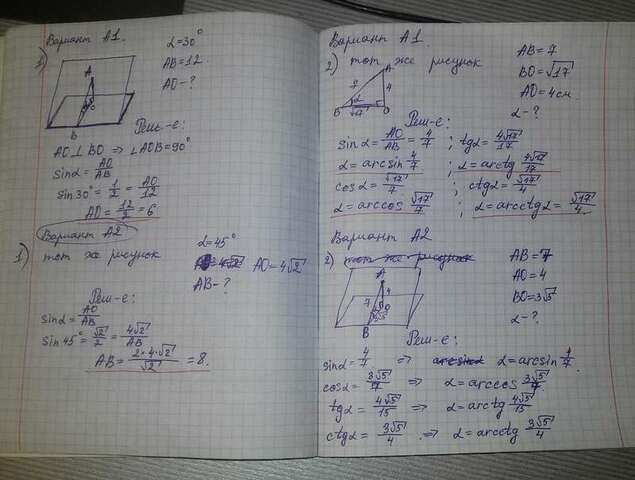 Вариант А1.
1)
α=30°
AB=12
AO-?
A
B
Реш-е:
AO⊥BO ⇒ ∠AOB=90°
sinα = AO/AB
sin30° = 1/2 = AO/12
AO = 12/2 = 6
Вариант А2
1) тот же рисунок
α=45°
AO=4√2
AB-?
Реш-е:
sinα = AO/AB
sin 45° = √2/2 = 4√2/AB
AB = 2×4×√2/√2 = 8.
Вариант А1
2) тот же рисунок
AB=7
BO=√17
AO=4см
α-?
A
7
4
α
B
√17
O
Реш-е:
sinα = AO/AB = 4/7 ; tgα = 4√17/17
α = arcsin 4/7 ; α = arctg 4√17/17
cosα = √17/7 ; ctgα = √17/4
α = arccos √17/7 ; α = arcctgα = √17/4
Вариант А2
2) тот же рисунок
AB=7
AO=4
BO=3√5
α-?
A
7
4
3√5
B
Реш-е:
sinα = 4/7 ⇒ α = arcsin 4/7
cosα = 3√5/7 ⇒ α = arccos 3√5/7
tgα = 4√5/15 ⇒ α = arctg 4√5/15
ctgα = 3√5/4 ⇒ α = arcctg 3√5/4